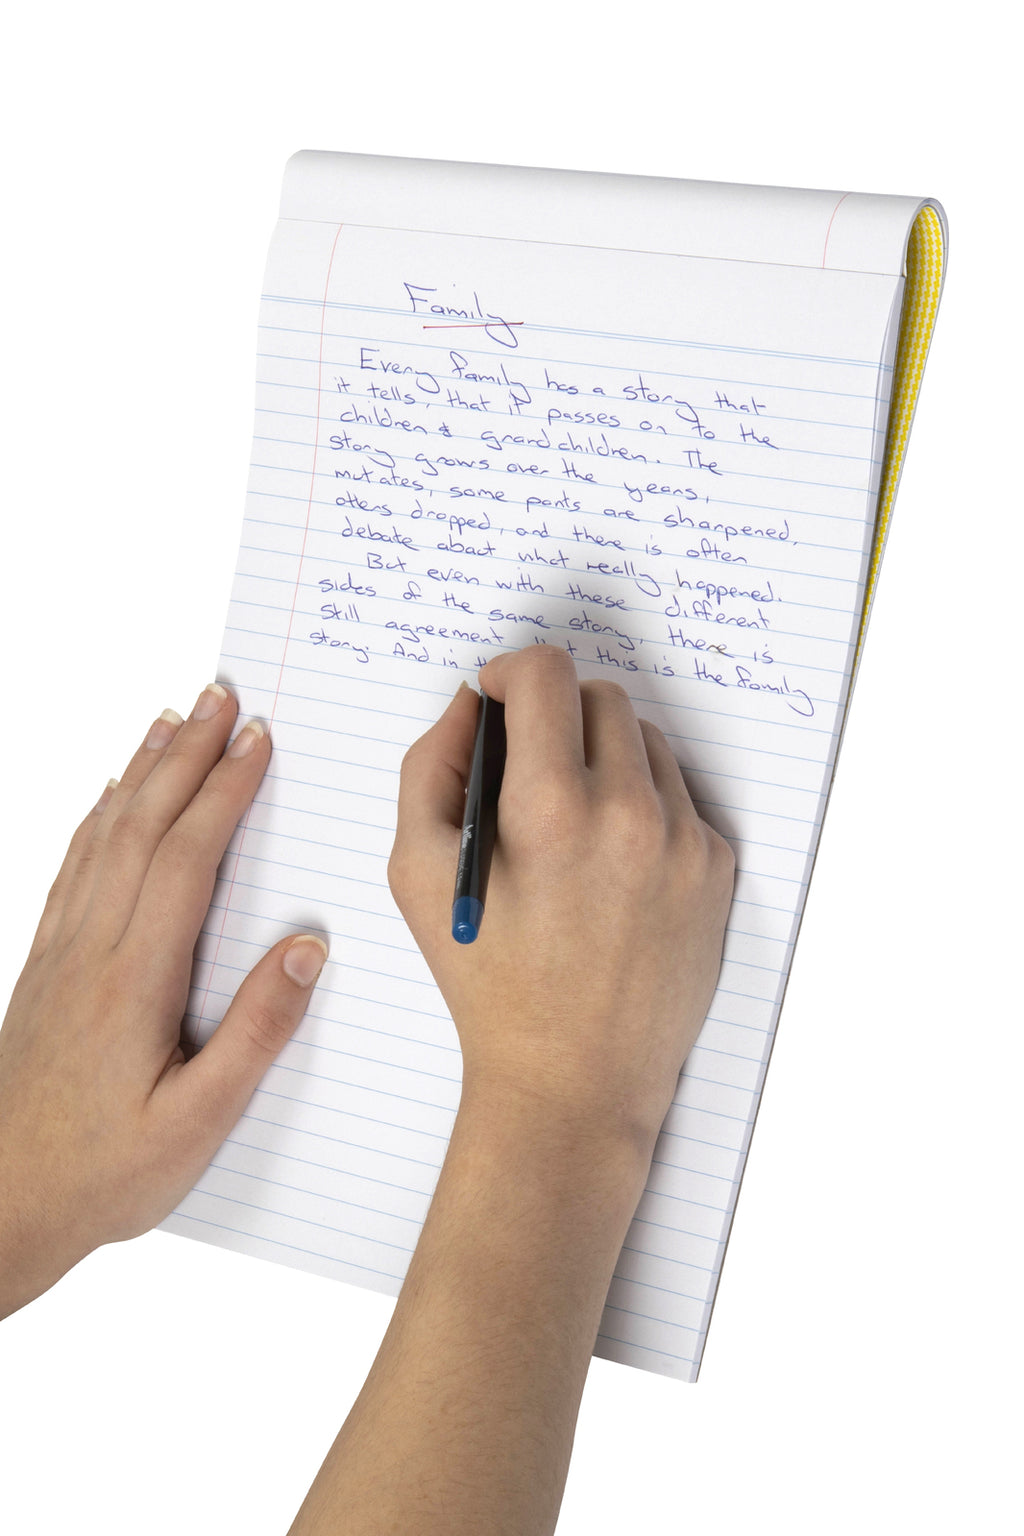 Family
Every family has a story that
it tells, that it passes on to the
children & grandchildren. The
story grows over the years,
mutates, some parts are sharpened,
others dropped, and there is often
debate about what really happened.
But even with these different
sides of the same story, there is
still agreement that this is the family
story. And in